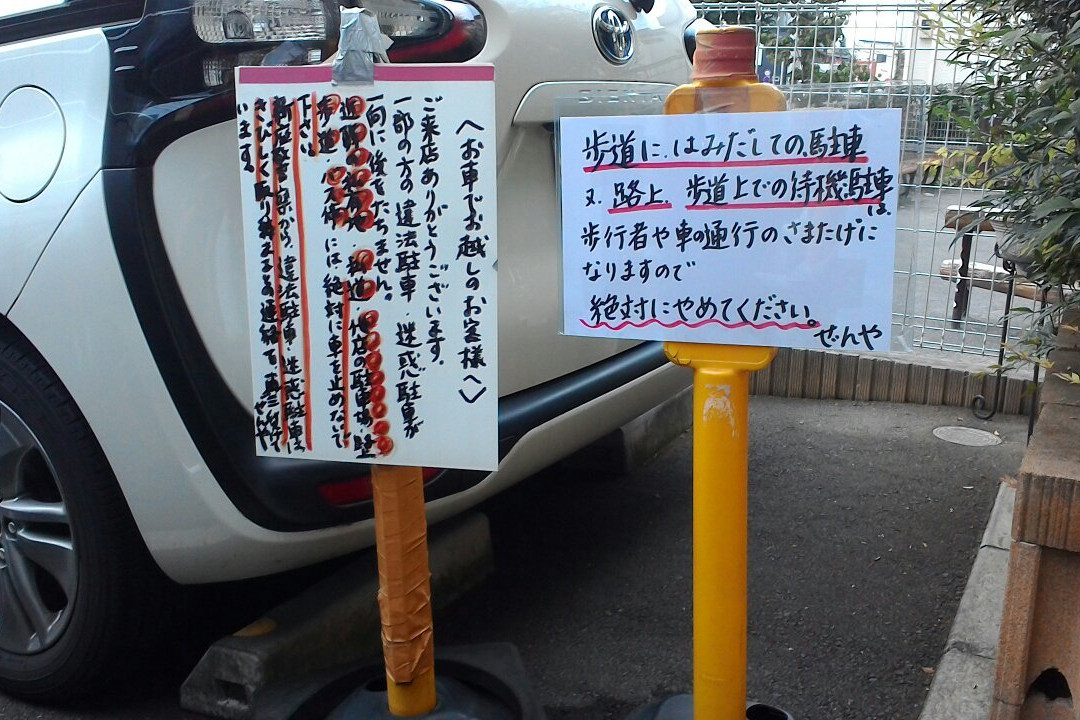 〈お車でお越しのお客様へ〉
ご来店ありがとうございます。
一部の方の違法駐車・迷惑駐車が
一向に後をたちません。
近隣の私有地・街道・他店の駐車場・駐
歩道・バス停には絶対に車を止めないで
下さい
警察から、違法駐車・迷惑駐車は
きびしく取り締まる
います。
歩道に、はみだしての駐車
又、路上、歩道上での待機駐車は、
歩行者や車の通行のさまたげに
なりますので
絶対にやめてください。
ぜんや
SIENTA